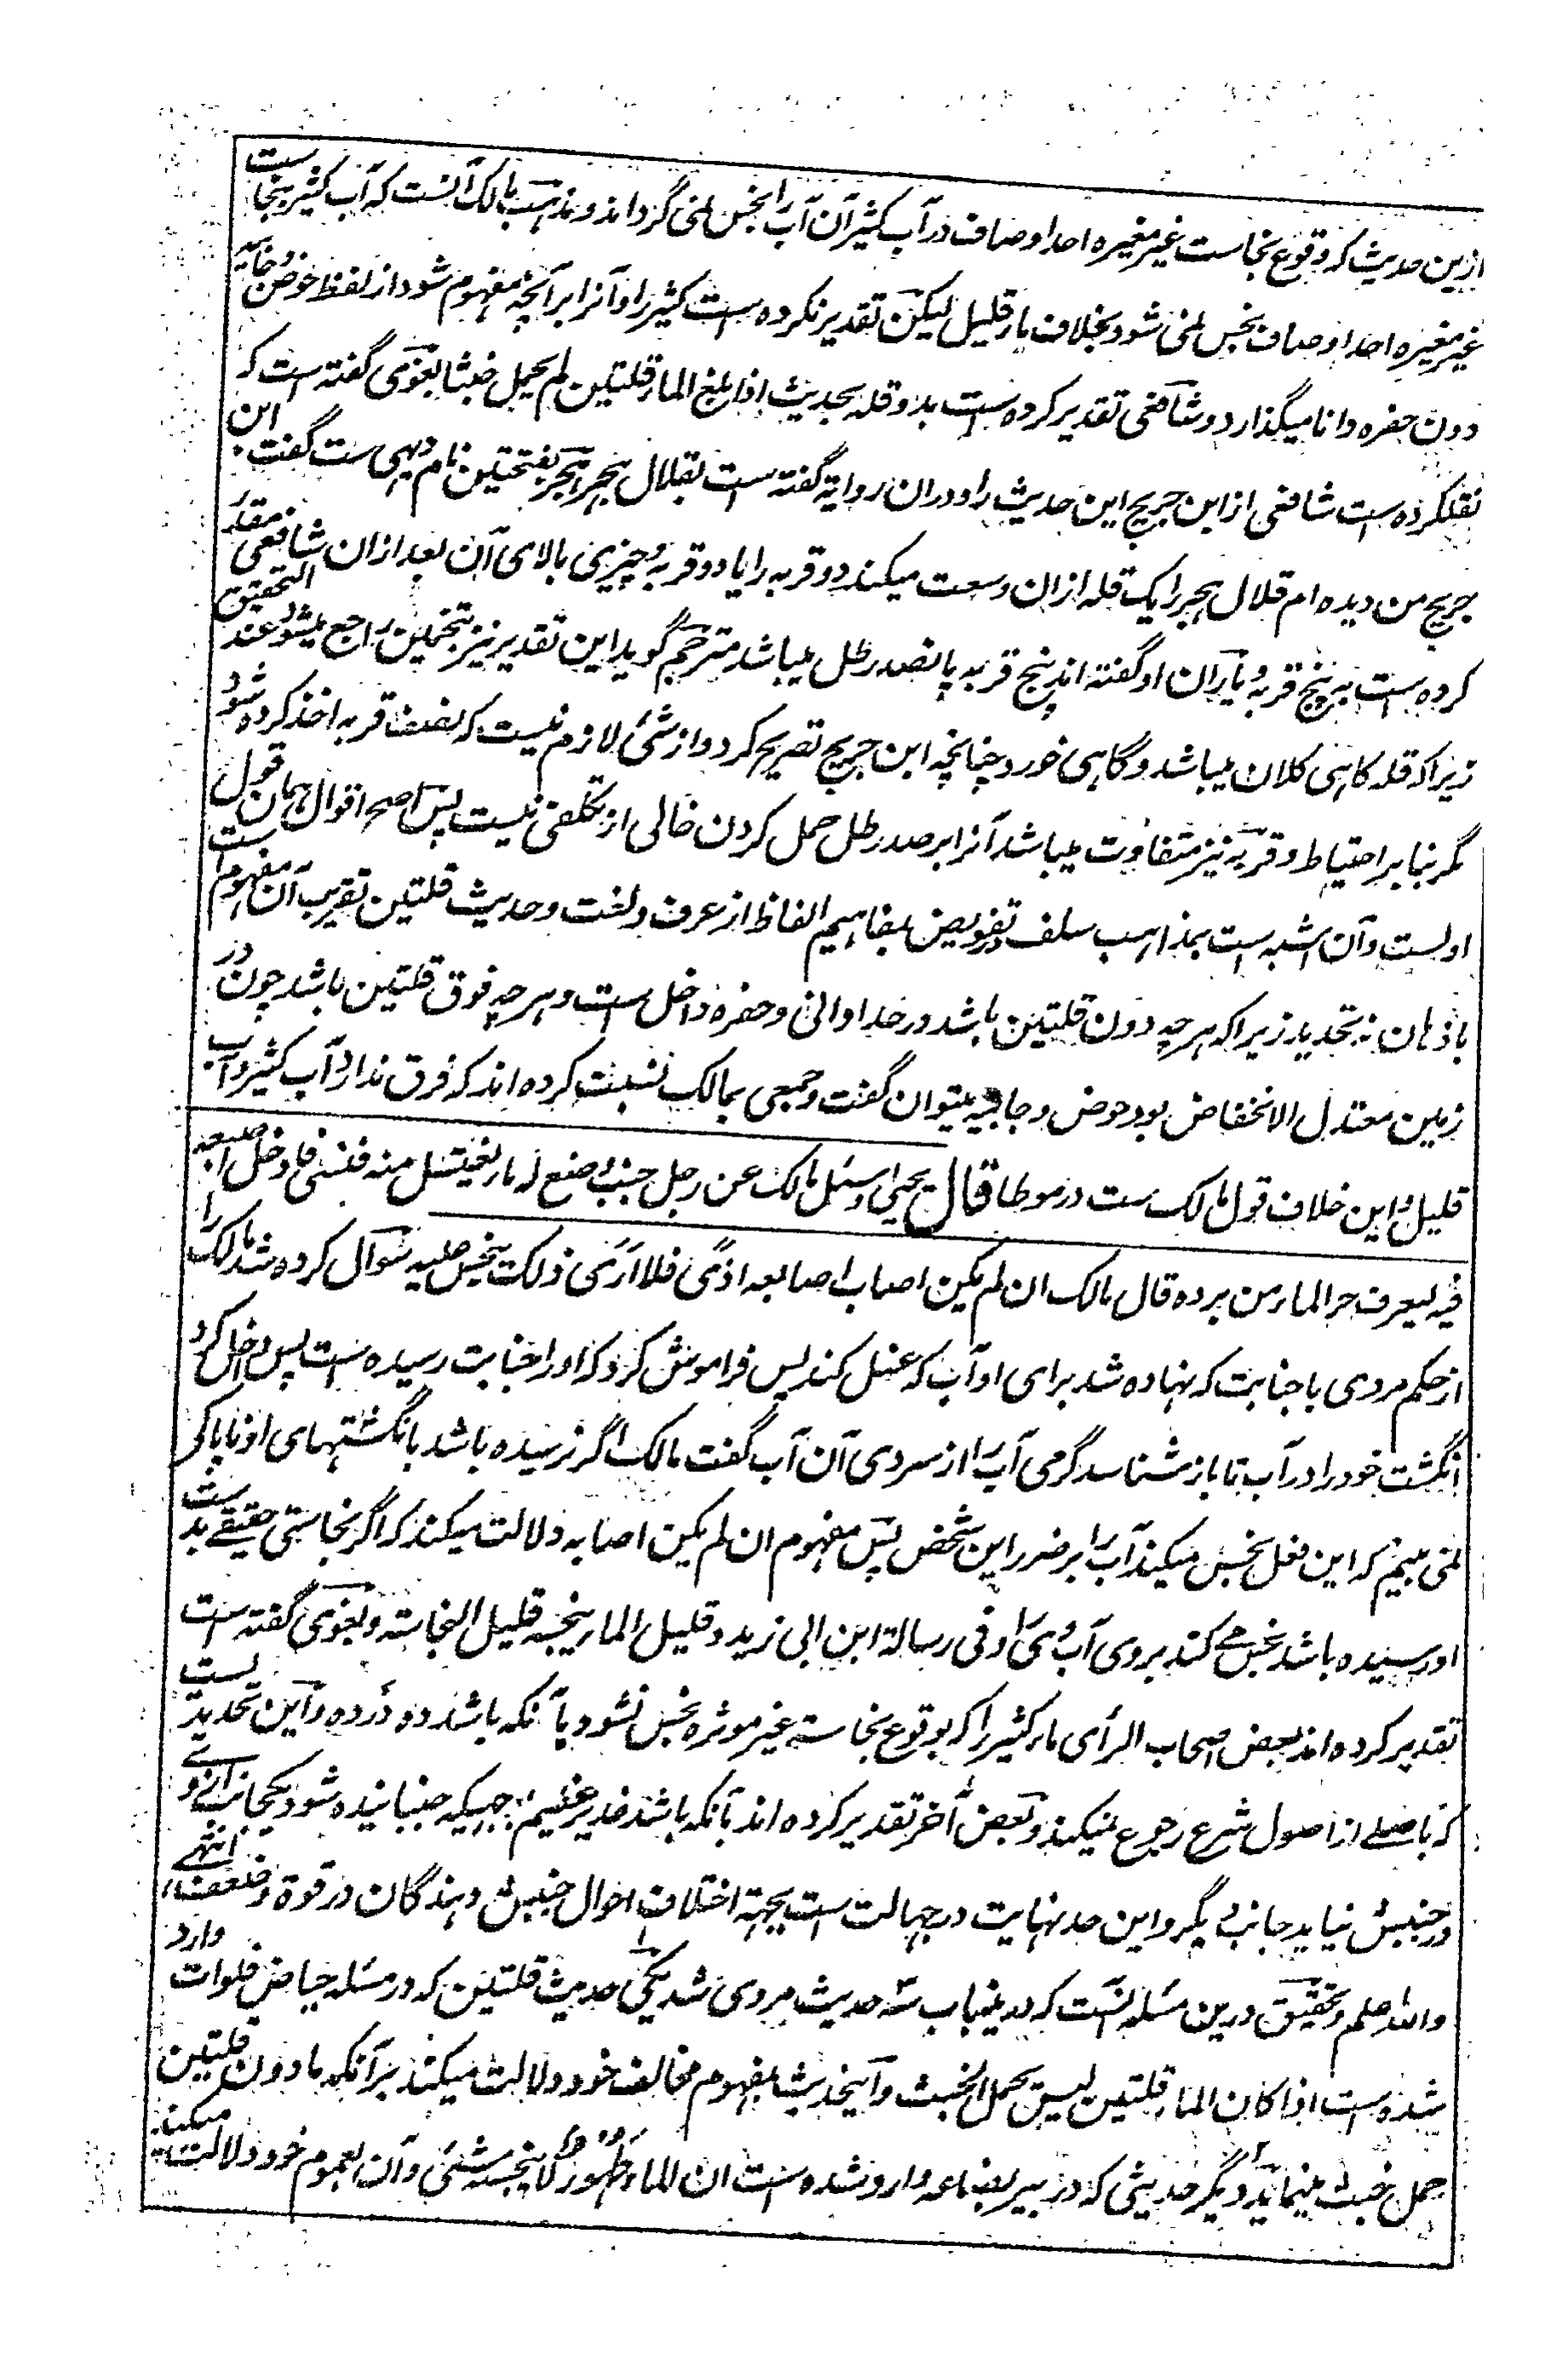 ازین حدیث که وقوع نجاست غیر مغیره احد اوصاف در آب کثیر آن آب را نجس نمی گرداند و مذهب مالک آنست که آب کثیر بنجاست
غیر مغیره احد اوصاف نجس نمی شود بخلاف ماء قلیل لیکن تقدیر نکرده است کثیر را و آنرا بر آنچه مفهوم شود از لفظ حوض و جابیه
دون حفره و انا میگذارد و شافعی تقدیر کرده است بدو قله بحدیث اذا بلغ الماء قلتین لم یحمل خبثا بغوی گفته است که
نقلکرده است شافعی از ابن جریج این حدیث را و دران روایة گفته است بقلال هجر و هجر بفتحتین نام دیهی ست گفت ابن
جریج من دیده ام قلال هجر را یک قله ازان وسعت میکند دو قربه را یا دو قربه و چیزی بالای آن بعد ازان شافعی مقدر
کرده ست به پنج قربه و یاران او گفته اند پنج قربه پانصد رطل میباشد مترجم گوید این تقدیر نیز بتخمین راجع میشود عند التحقیق
زیرا که قله گاهی کلان میباشد و گاهی خورد چنانچه ابن جریج تصریح کرد و از شئ لازم نیست که نصف قربه اخذ کرده شود
مگر بنا بر احتیاط و قربه نیز متفاوت میباشد آنرا بر صد رطل حمل کردن خالی از تکلفی نیست پس اصح اقوال همان قول
اولست و آن اشبه است بمذاهب سلف در تفویض بمفاهیم الفاظ از عرف و لغت و حدیث قلتین تقریب آن مفهوم است
باذهان نه تحدید زیرا که هر چه دون قلتین باشد در حد اوانی و حفره داخل ست و هر چه فوق قلتین باشد چون در
زمین معتدل الانخفاض بود حوض و جابیه میتوان گفت و جمعی بمالک نسبت کرده اند که فرق ندارد آب کثیر و آب
قلیل و این خلاف قول مالک ست در موطا قال یحیی وسئل مالک عن رجل جنب وضع له ماء یغتسل منه فنسی فادخل اصبعه
فیه لیعرف حر الماء من برده قال مالک ان لم یکن اصاب اصابعه اذی فلا اری ذلک ینجس علیه سوال کرده شد مالک را
از حکم مردی با جنابت که نهاده شد برای او آب که غسل کند پس فراموش کرد که او را جنابت رسیده ست پس داخل کرد
انگشت خود را در آب تا باز شناسد گرمی آب را از سردی آن آب گفت مالک اگر نرسیده باشد بانگشتهای او ناپاکی
نمی بینم که این فعل نجس میکند آب را بر ضرر این شخص پس مفهوم ان لم یکن اصابه دلالت میکند که اگر نجاستی حقیقے بدست
او رسیده باشد نجس مے کند بروی آب وی را و فی رسالة ابن ابی زید و قلیل الماء ینجسه قلیل النجاسة و بغوی گفته ست
تقدیر کرده اند بعض اصحاب الرأی ماء کثیر را که بوقوع نجاسة غیر موثره نجس نشود بآنکه باشد ده در ده و این تحدیدیست
که باصلے از اصول شرع رجوع نمیکند و بعض اُخر تقدیر کرده اند بآنکه باشد غدیر عظیم بحیثیکه جنبانیده شود یکجانب آن و
در جنبش نیاید جانب دیگر و این حد نهایت در جهالت است بجهة اختلاف احوال جنبش دهندگان در قوة و ضعف انتهے
والله اعلم و تحقیق درین مسئله آنست که درینباب سه حدیث مروی شد یکی حدیث قلتین که در مسئله حیاض فلوات وارد
شده ست اذا کان الماء قلتین لیس یحمل الخبث و اینحدیث بمفهوم مخالف خود دلالت میکند بر آنکه ما دون قلتین
حمل خبث مینماید و دیگر حدیثی که در بیر بضاعه وارد شده ست ان الماء طهور لا ینجسه شئ و آن بعموم خود دلالت میکند